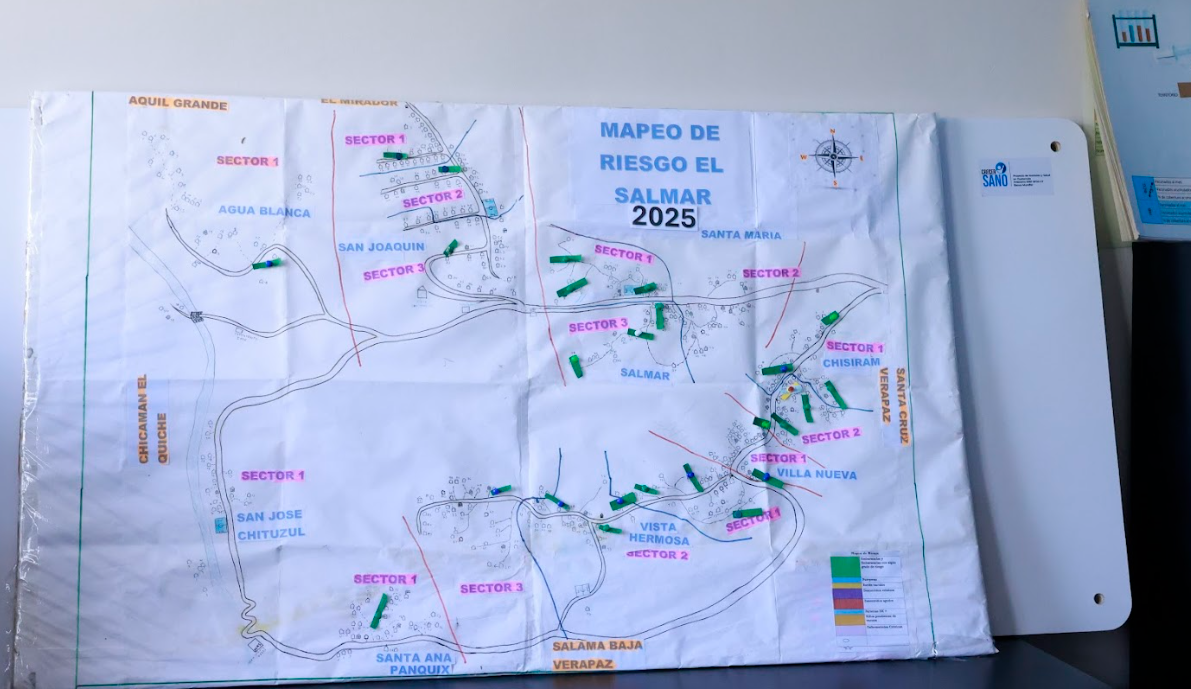 AQUIL GRANDE
EL MIRADOR
SECTOR 1
SECTOR 1
AGUA BLANCA
SECTOR 2
SAN JOAQUIN
SECTOR 3
MAPEO DE
RIESGO EL
SALMAR
2025
N
W
E
S
SANTA MARIA
SECTOR 1
SECTOR 2
SECTOR 3
SALMAR
SECTOR 1
CHISIRAM
SANTA CRUZ
VERAPAZ
SECTOR 2
SECTOR 1
VILLA NUEVA
SECTOR 1
CHICAMAN EL
QUICHE
SECTOR 1
SAN JOSE
CHITUZUL
VISTA
HERMOSA
SECTOR 2
SECTOR 3
SECTOR 1
SANTA ANA
PANQUIX
SALAMA BAJA
VERAPAZ
CRECER
SANO